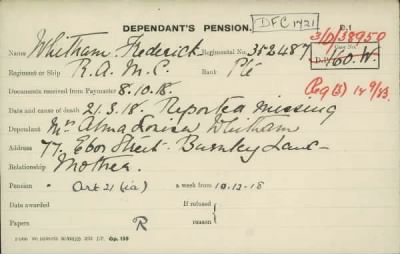 DEPENDANT'S PENSION.
DFC 1421
D.1
3/D/38950
Name Whitham. Frederick Regimental No. 352487
Case No.
D.P. 1/60.W.
Regiment or Ship R.A.M.C. Rank Pte
Documents received from Paymaster 8.10.18.
Reg (3) 14 9/33
Date and cause of death 21.3.18. Reported missing
Dependant Mrs Alma Louisa Whitham
Address 77. Ebor Street Burnley Lancs
Relationship Mother.
Pension Art 21 (ia) a week from 10.12.18
Date awarded If refused
Papers R reason
Gp. 130